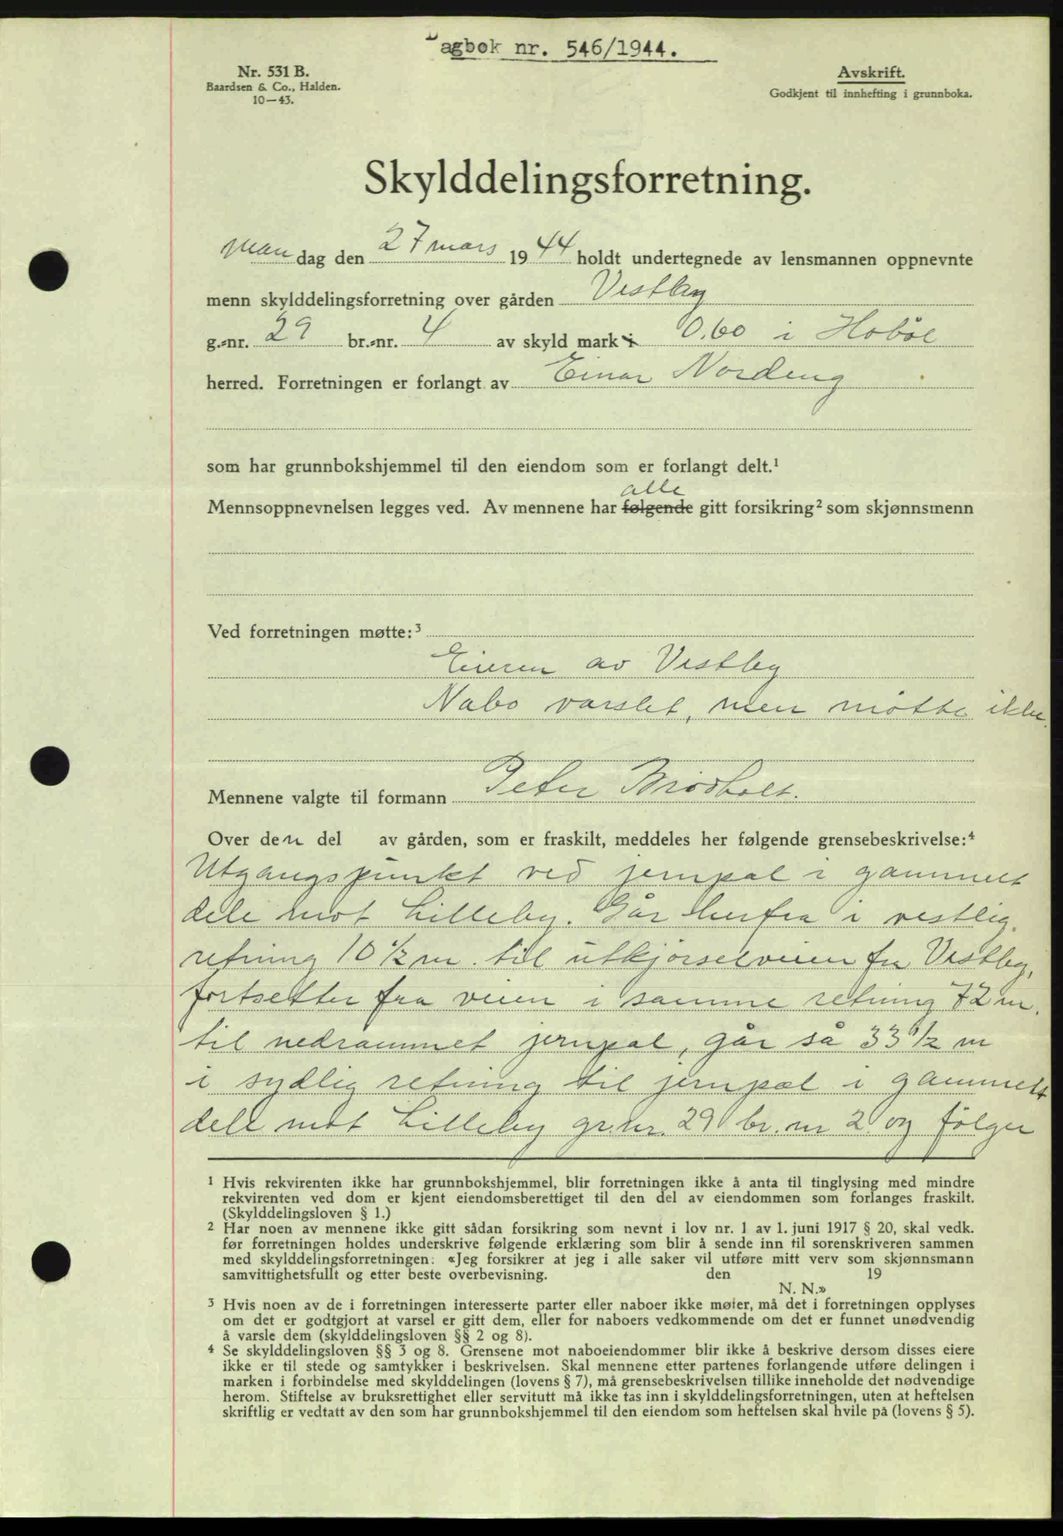 Dagbok nr. 546/1944.
Nr. 531 B.
Baardsen & Co., Halden.
10—43.
Avskrift.
Godkjent til innhefting i grunnboka.
Skylddelingsforretning.
Mandag den 27 mars 1944 holdt undertegnede av lensmannen oppnevnte
menn skylddelingsforretning over gården Vestby
g.-nr. 29 br.-nr. 4 av skyld mark 0,60 i Hobøl
herred. Forretningen er forlangt av Einar Nordeng
som har grunnbokshjemmel til den eiendom som er forlangt delt.¹
alle
Mennsoppnevnelsen legges ved. Av mennene har følgende gitt forsikring² som skjønnsmenn
Ved forretningen møtte:³
Eieren av Vestby
Nabo varslet, men møtte ikke.
Mennene valgte til formann Peter Brødholt.
Over den del av gården, som er fraskilt, meddeles her følgende grensebeskrivelse:⁴
Utgangspunkt ved jernpæl i gammelt
dele mot Lilleby. Går herfra i vestlig
retning 10 ½ m. til utkjørselveien fra Vestby,
fortsetter fra veien i samme retning 72 m.
til nedrammet jernpæl, går så 33 ½ m
i sydlig retning til jernpæl i gammelt
dele mot Lilleby gr.nr. 29 br. nr 2. og følger
¹ Hvis rekvirenten ikke har grunnbokshjemmel, blir forretningen ikke å anta til tinglysing med mindre
rekvirenten ved dom er kjent eiendomsberettiget til den del av eiendommen som forlanges fraskilt.
(Skylddelingsloven § 1.)
² Har noen av mennene ikke gitt sådan forsikring som nevnt i lov nr. 1 av 1. juni 1917 § 20, skal vedk.
før forretningen holdes underskrive følgende erklæring som blir å sende inn til sorenskriveren sammen
med skylddelingsforretningen: «Jeg forsikrer at jeg i alle saker vil utføre mitt verv som skjønnsmann
samvittighetsfullt og etter beste overbevisning. den 19
N. N.»
³ Hvis noen av de i forretningen interesserte parter eller naboer ikke møter, må det i forretningen opplyses
om det er godtgjort at varsel er gitt dem, eller for naboers vedkommende om det er funnet unødvendig
å varsle dem (skylddelingsloven §§ 2 og 8).
⁴ Se skylddelingsloven §§ 3 og 8. Grensene mot naboeiendommer blir ikke å beskrive dersom disses eiere
ikke er til stede og samtykker i beskrivelsen. Skal mennene etter partenes forlangende utføre delingen i
marken i forbindelse med skylddelingen (lovens § 7), må grensebeskrivelsen tillike inneholde det nødvendige
herom. Stiftelse av bruksrettighet eller servitutt må ikke tas inn i skylddelingsforretningen, uten at heftelsen
skriftlig er vedtatt av den som har grunnbokshjemmel til den eiendom som heftelsen skal hvile på (lovens § 5).